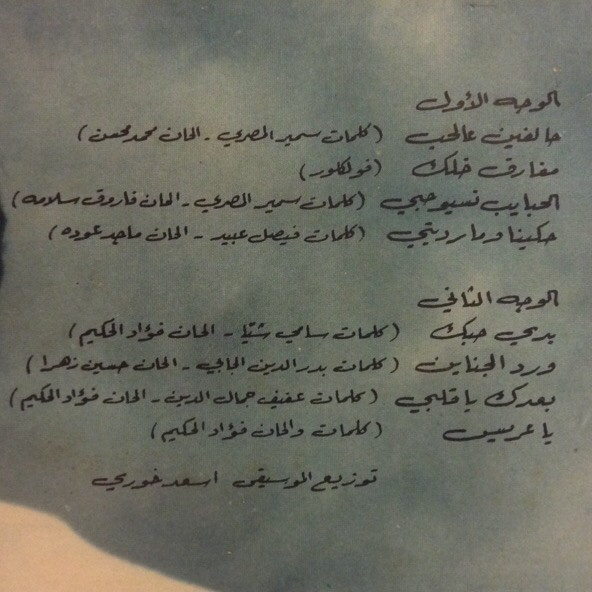 الوجه الأول
حالفين عالحب (كلمات سمير المصري - الحان محمد محسن)
مفارق خلك (فولكلور)
الحبايب نسيو حبي (كلمات سمير المصري - الحان فاروق سلامه)
حكينا وما رديتي (كلمات فيصل عبيد - الحان ماجد عوده)
الوجه الثاني
بدي حبك (كلمات سامي شتيا - الحان فؤاد الحكيم)
ورد الجناين (كلمات بدر الدين الجابي - الحان حسين زهرا)
بعدك يا قلبي (كلمات عفيف جمال الدين - الحان فؤاد الحكيم)
يا عريس (كلمات والحان فؤاد الحكيم)
توزيع الموسيقى اسعد خوري